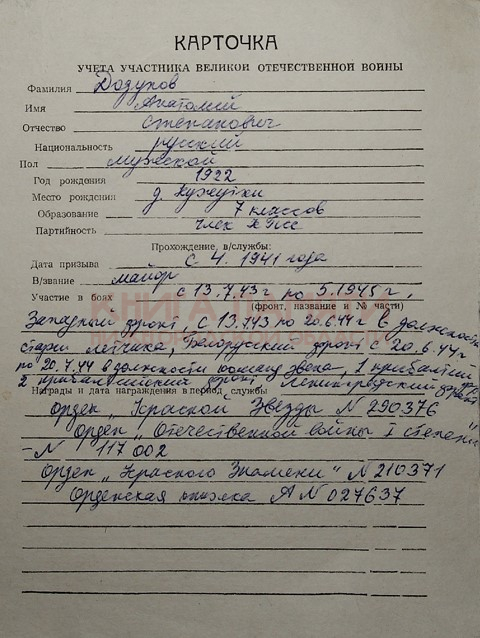 КАРТОЧКА
УЧЕТА УЧАСТНИКА ВЕЛИКОЙ ОТЕЧЕСТВЕННОЙ ВОЙНЫ
Фамилия Дозунов
Имя Анатолий
Отчество Степанович
Национальность русский
Пол мужской
Год рождения 1922
Место рождения д.
Образование 7 классов
Партийность член КПСС
Прохождение, в/службы:
Дата призыва с 4. 1941 года
В/звание майор
Участие в боях с 13.7.43 г по 5.1945 г.
(фронт, название и № части)
КНИГА
Западный фронт, с 13.7.43 по 20.6.44 г в должности
старш летчика, Белорусский фронт с 20.6.44 г
по 20.7.44 в должности команд звена, 1 прибалтий
2 прибалтийский фронт, Ленинградский фронт
Награды и дата награждения в период службы
орден „Красной Звезды" № 290376
Орден „Отечественной войны I степени"
- № 117 002
Орден „Красного Знамени" № 210371
Орденская книжка А № 027637